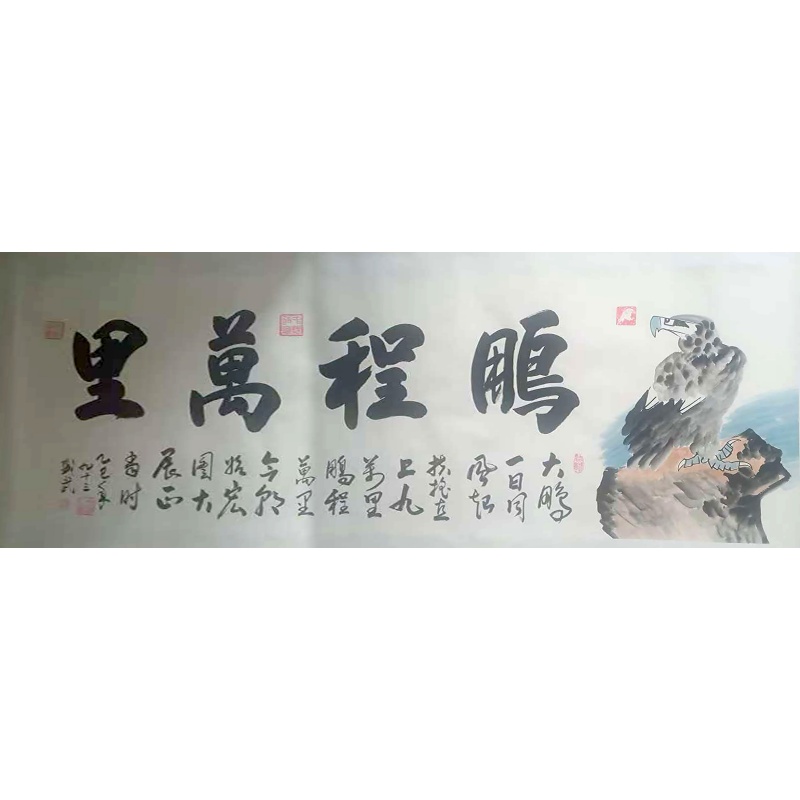 鵬程萬里
大鵬
一日同
風起
扶搖直
上九
萬里
鵬程
萬里
今朝
始宏
圖大
展正
當时
乙巳年
九十三